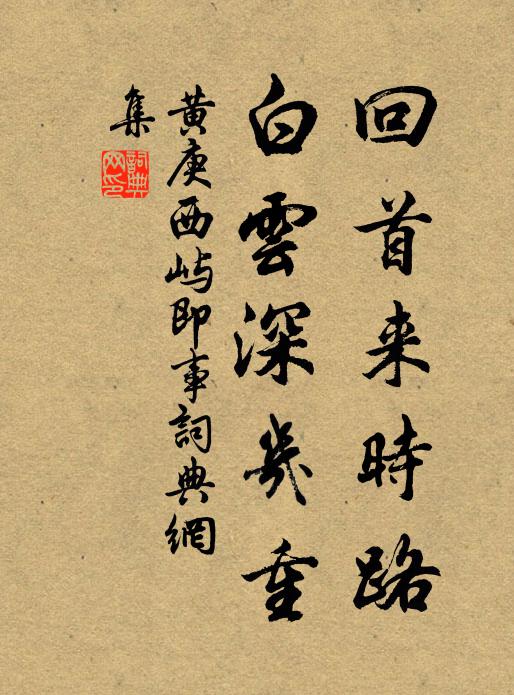 回首来時路
白雲深幾重
黄庚西屿即事詞典網
集
詞典
网印